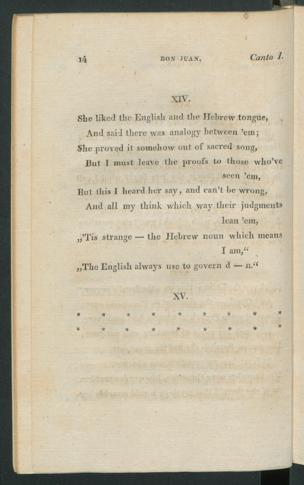 14 DON JUAN, Canto I.
XIV.
She liked the English and the Hebrew tongue,
And said there was analogy between 'em;
She proved it somehow out of sacred song,
But I must leave the proofs to those who've
seen 'em,
But this I heard her say, and can't be wrong,
And all my think which way their judgments
lean 'em,
„'Tis strange — the Hebrew noun which means
I am,“
„The English always use to govern d — n.“
XV.
* * * * * * * * *
* * * * * * * * *